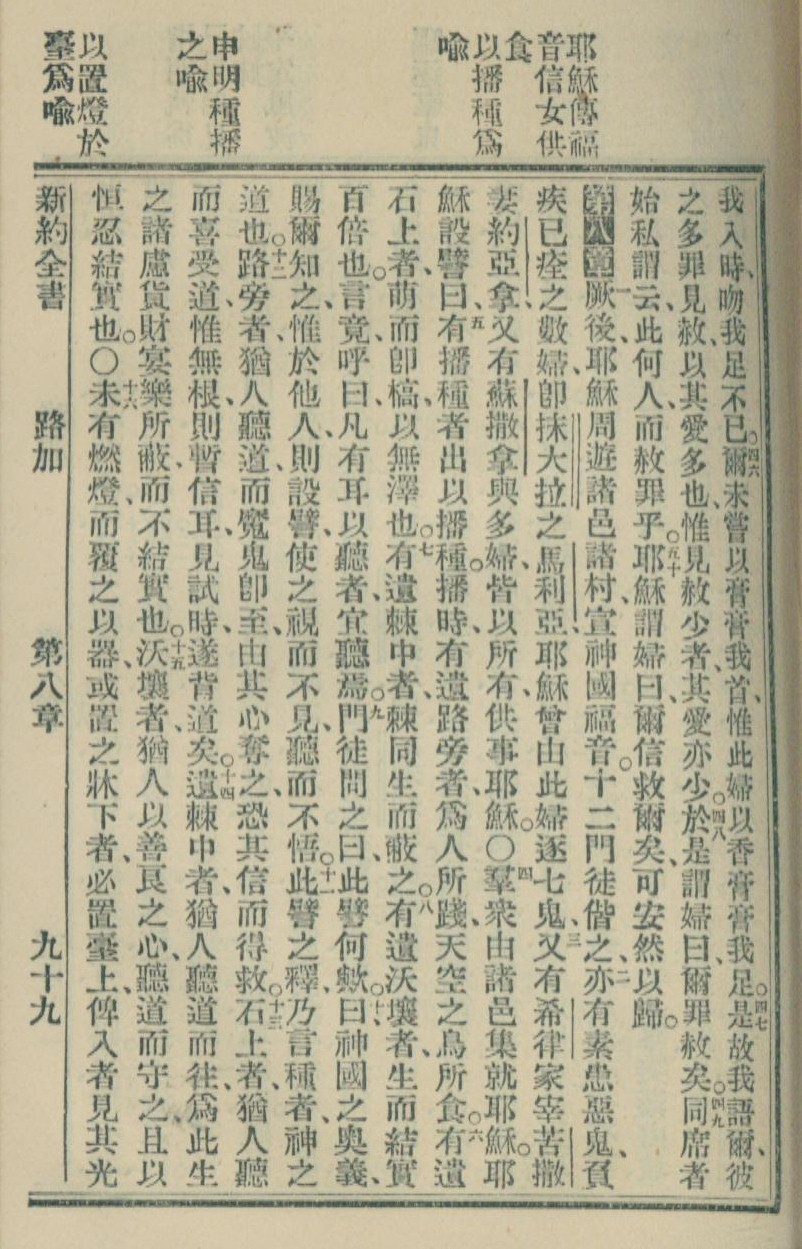 耶穌傳福
音信女供
食
以播種爲
喻
申明種播
之喻
以置燈於
臺爲喻
我入時、吻我足不已。四六爾未嘗以膏膏我首、惟此婦以香膏膏我足。四七是故我語爾、彼
之多罪見赦、以其愛多也、惟見赦少者、其愛亦少。四八於是謂婦曰、爾罪赦矣。四九同席者
始私謂云、此何人、而赦罪乎。五十耶穌謂婦曰、爾信救爾矣、可安然以歸。
第八章一厥後、耶穌周遊諸邑諸村、宣神國福音。十二門徒偕之、二亦有素患惡鬼、負
疾已痊之數婦、卽抹大拉之馬利亞、耶穌曾由此婦逐七鬼、三又有希律家宰苦撒
妻約亞拿、又有蘇撒拿與多婦、皆以所有、供事耶穌。〇四羣衆由諸邑集就耶穌。耶
穌設譬曰、五有播種者出以播種。播時、有遺路旁者、爲人所踐、天空之鳥所食。六有遺
石上者、萌而卽槁、以無澤也。七有遺棘中者、棘同生而蔽之。八有遺沃壤者、生而結實
百倍也。言竟、呼曰、凡有耳以聽者、宜聽焉。九門徒問之曰、此譬何歟。十曰、神國之奧義、
賜爾知之、惟於他人、則設譬、使之視而不見、聽而不悟。十一此譬之釋、乃言種者、神之
道也。十二路旁者、猶人聽道、而魔鬼卽至、由其心奪之、恐其信而得救。十三石上者、猶人聽
而喜受道、惟無根、則暫信耳、見試時、遂背道矣。十四遺棘中者、猶人聽道而往、爲此生
之諸慮貨財宴樂所蔽、而不結實也。十五沃壤者、猶人以善良之心、聽道而守之、且以
恒忍結實也。〇十六未有燃燈、而覆之以器、或置之牀下者、必置臺上、俾入者見其光
新約全書　路加　第八章　九十九